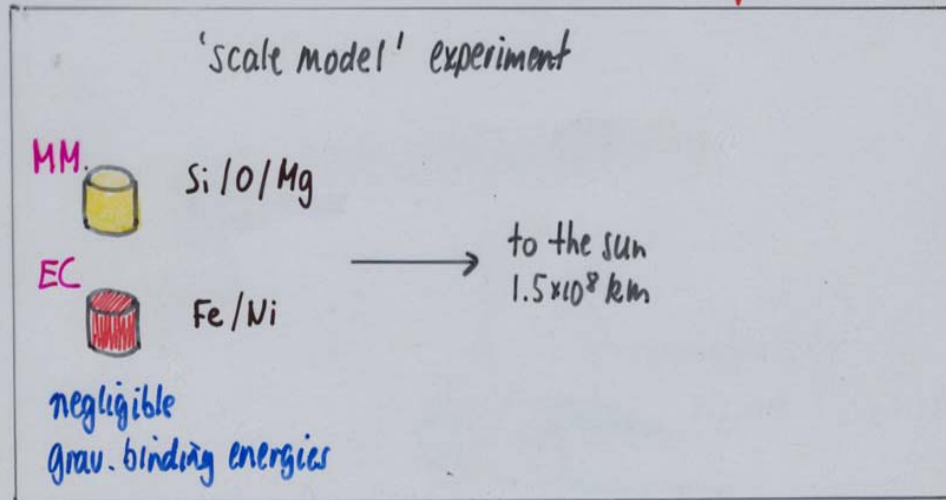 'scale model' experiment
MM.
Si/O/Mg
to the sun
1.5×10⁸ km
EC
Fe/Ni
negligible
grav. binding energies